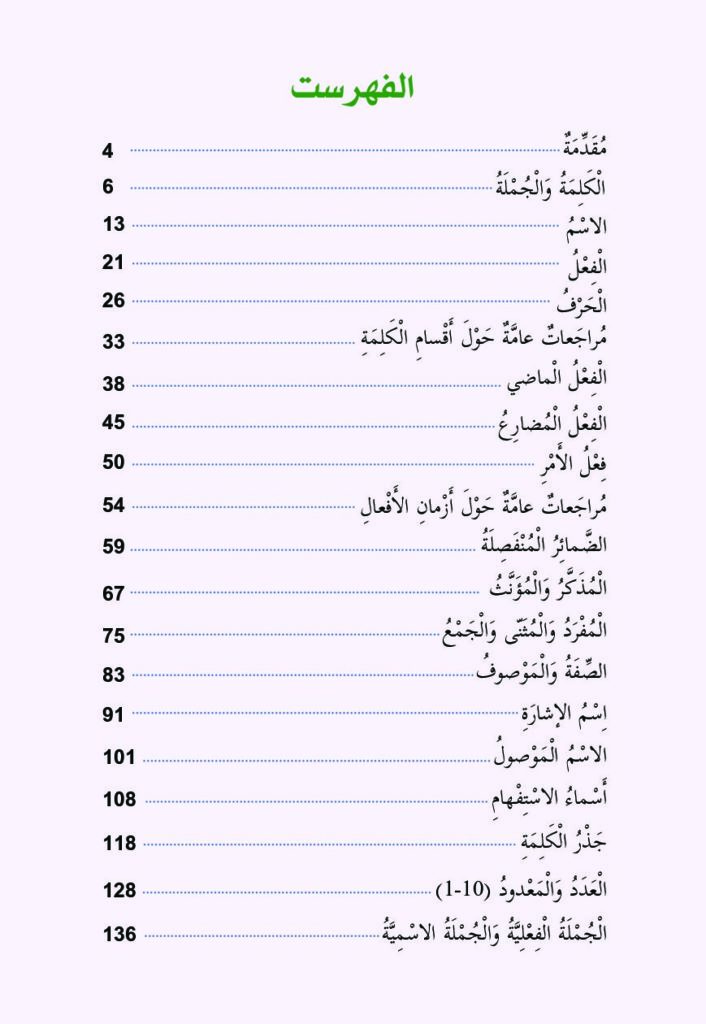 الفهرست
مُقَدِّمَةٌ 4
الْكَلِمَةُ وَالْجُمْلَةُ 6
الاسْمُ 13
الْفِعْلُ 21
الْحَرْفُ 26
مُراجَعاتٌ عامَّةٌ حَوْلَ أَقْسامِ الْكَلِمَةِ 33
الْفِعْلُ الْماضي 38
الْفِعْلُ الْمُضارِعُ 45
فِعْلُ الأَمْرِ 50
مُراجَعاتٌ عامَّةٌ حَوْلَ أَزْمانِ الأَفْعالِ 54
الضَّمائِرُ الْمُنْفَصِلَةُ 59
الْمُذَكَّرُ وَالْمُؤَنَّثُ 67
الْمُفْرَدُ وَالْمُثَنّى وَالْجَمْعُ 75
الصِّفَةُ وَالْمَوْصوفُ 83
اِسْمُ الإشارَةِ 91
الاسْمُ الْمَوْصولُ 101
أَسْماءُ الاسْتِفْهامِ 108
جَذْرُ الْكَلِمَةِ 118
الْعَدَدُ وَالْمَعْدودُ (10-1) 128
الْجُمْلَةُ الْفِعْلِيَّةُ وَالْجُمْلَةُ الاسْمِيَّةُ 136